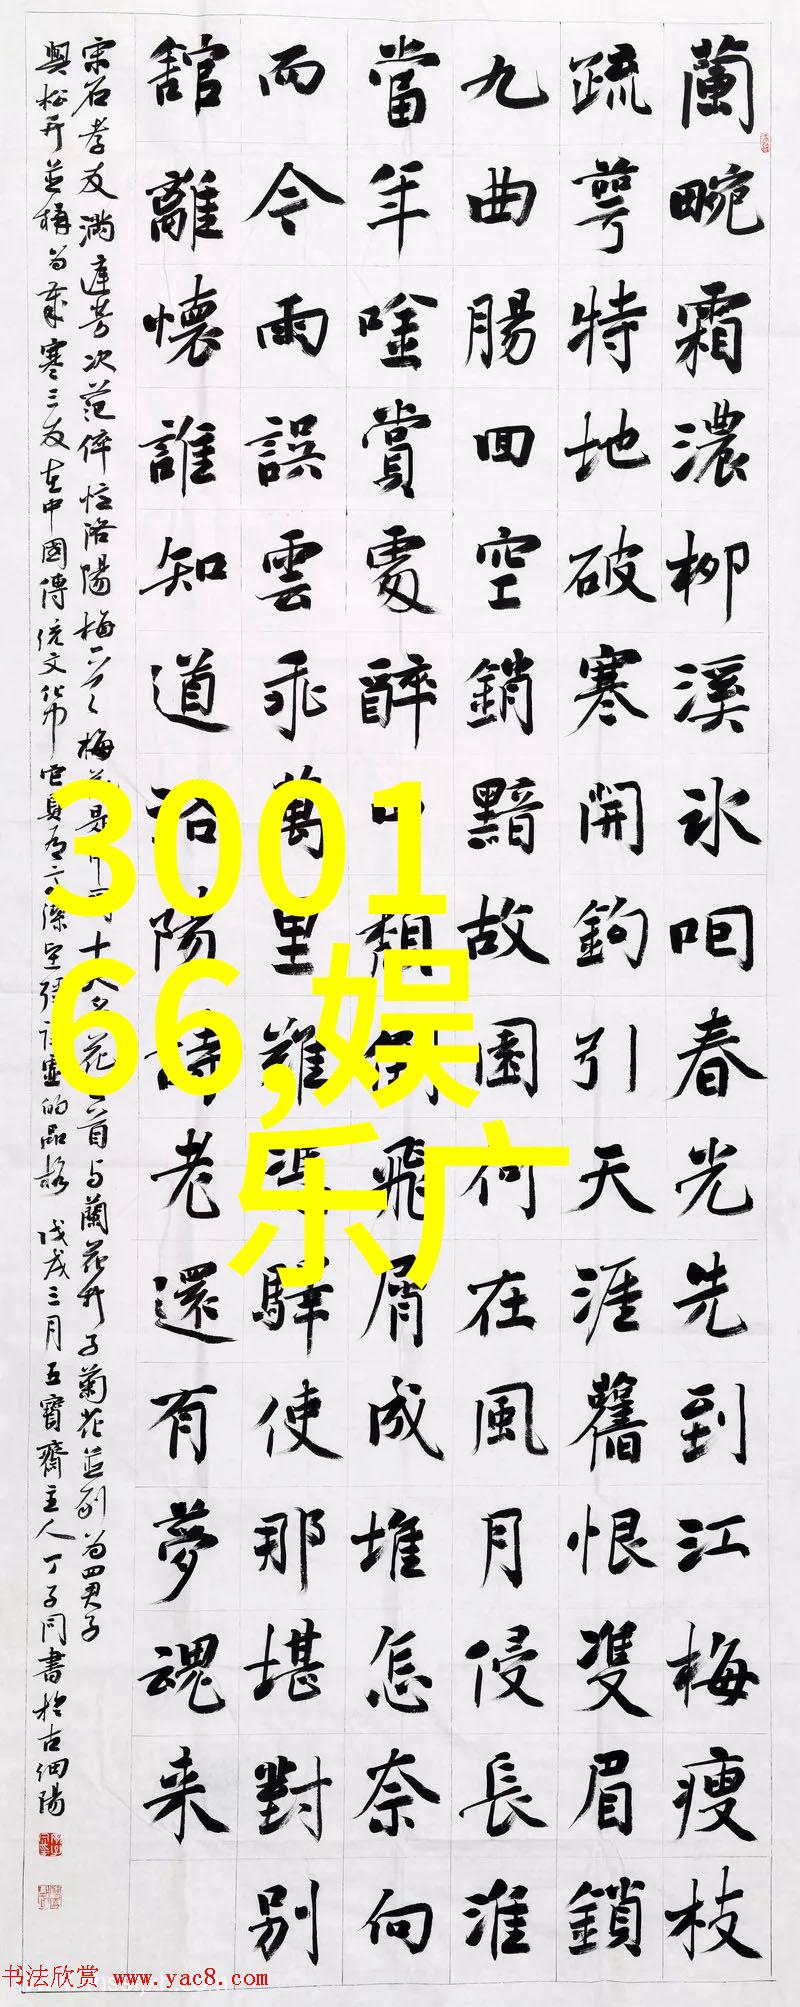 蘭畹霜濃柳溪冰咽春光先到江梅瘦枝
疏萼特地破寒開鉤引天涯舊恨雙眉鎖
九曲腸回空銷黯故園何在風月侵長淮
當年唫賞處醉頹飛屑成堆怎奈向
而今雨誤雲乖萬里難逢驛使那堪對別
館離懷誰知道洛陽詩老還有夢魂来
宋石孝友滿庭芳次范倅憶洛陽梅
梅花是十大名花之首与蘭花竹子菊花並列为四君子
與松竹並稱为歲寒三友在中國傳统文化中
的品格 戊戌三月五寶齋主人丁子同書於古细陽
300166,娱乐广
书法欣赏 www.yac8.com